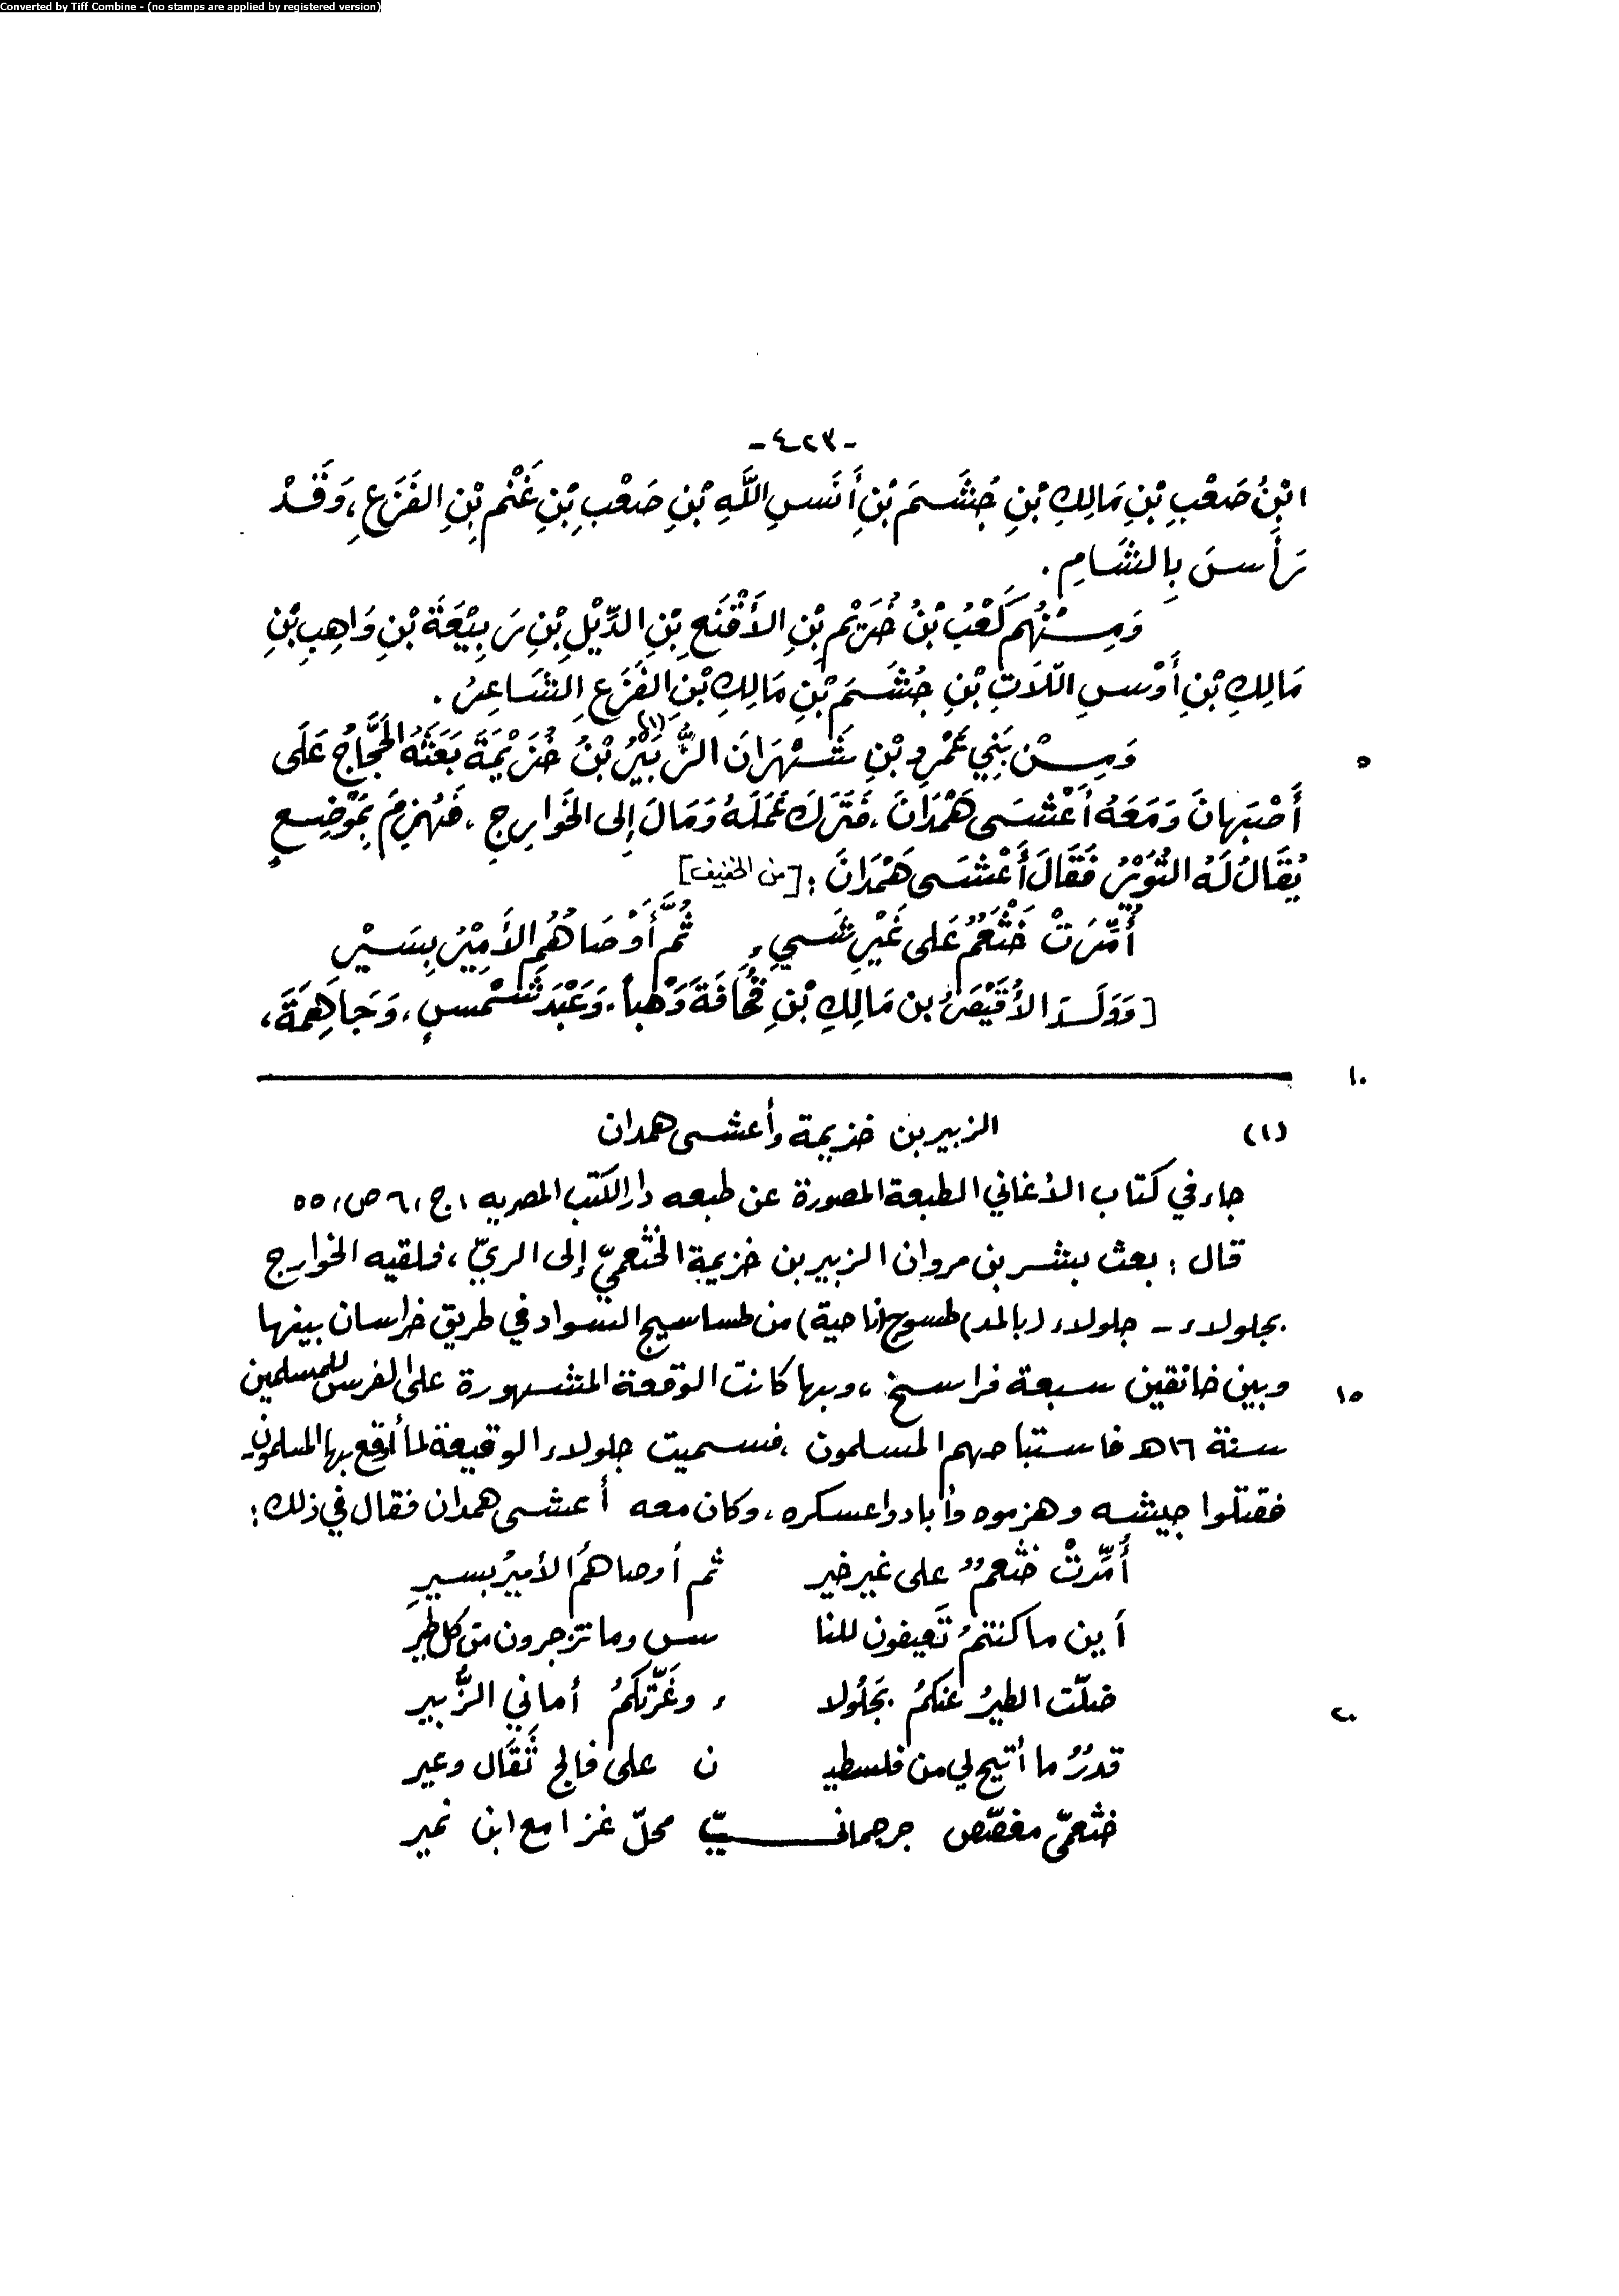 Converted by Tiff Combine - (no stamps are applied by registered version)
-٤٢٣-
ابْنُ صَعْبِ بْنِ مَالِكِ بْنِ جُشَمَ بْنِ أَنَسِ اللَّهِ بْنِ صَعْبِ بْنِ غَنْمِ بْنِ الفَزَعِ، وَقَدْ
رَأَسَ بِالشَّامِ.
وَمِنْهُم كَعْبُ بْنُ خُزَيْمِ بْنِ الأَقْنَعِ بْنِ الدِّيْلِ بْنِ رَبِيْعَةَ بْنِ وَاهِبِ بْنِ
مَالِكِ بْنِ أَوْسِ اللَّاتِ بْنِ جُشَمَ بْنِ مَالِكِ بْنِ الفَزَعِ الشَّاعِرُ.
وَمِنْ بَنِي عَمْرِو بْنِ شَهْرَانَ الزُّبَيْرُ(١) بْنُ خُزَيْمَةَ بَعَثَهُ الحَجَّاجُ عَلَى
٥
أَصْبَهانَ وَمَعَهُ أَعْشَى هَمْدَانَ، فَتَرَكَ عَمَلَهُ وَمَالَ إِلى الخَوارِجِ، فَهُزِمَ بِمَوْضِعٍ
يُقَالُ لَهُ التُّوَيْرُ فَقَالَ أَعْشَى هَمْدَانَ: [من الخفيف]
أُمِّرَتْ خَثْعَمٌ عَلى غَيْرِ شَيءٍ ثُمَّ أَوْصَاهُمُ الأَمِيْرُ بِسَيْرِ
[وَوَلَدَ الأُقَيْصِرُ بن مَالِكِ بْنِ قُحَافَةَ وَهْباً، وَعَبْدَ شَمْسٍ، وَجَاهِمَةَ،
١٠
(١) الزبير بن خزيمة وأعشى همدان
جاء في كتاب الأغاني الطبعة المصورة عن طبعه دار الكتب المصريه ،ج ،٦ ص، ٥٥
قال: بعث بشر بن مروان الزبير بن خزيمة الخثعميّ إلى الريّ، فلقيه الخوارج
بجلولاء - جلولاء (بالمد) طسوج (ناحية) من طساسيج السواد في طريق خراسان بينها
وبين خانقين سبعة فراسخ، وبها كانت الوقعة المشهورة على الفرس للمسلمين
١٥
سنة ١٦هـ فاستباحهم المسلمون، فسميت جلولاء الوقيعة لما أوقع بها المسلمون
فقتلوا جيشه وهزموه وأبادوا عسكره، وكان معه أعشى همدان فقال في ذلك:
أُمِّرتْ خثعمٌ على غير خير ثم أوصاهمُ الأميرُ بسيرِ
أين ما كنتمُ تَعيفون للنا س وما تزجرون من كل طير
ضلّت الطيرُ عنكمُ بجَلُولا ء وغَرّتكمُ أماني الزُّبير
٢٠
قدرٌ ما أتيح لي من فلسطيـ ن على فالج ثَقَال وعير
خثعميّ مغصّص جرجمانـــيّ محلّ غزا مع ابن نمير